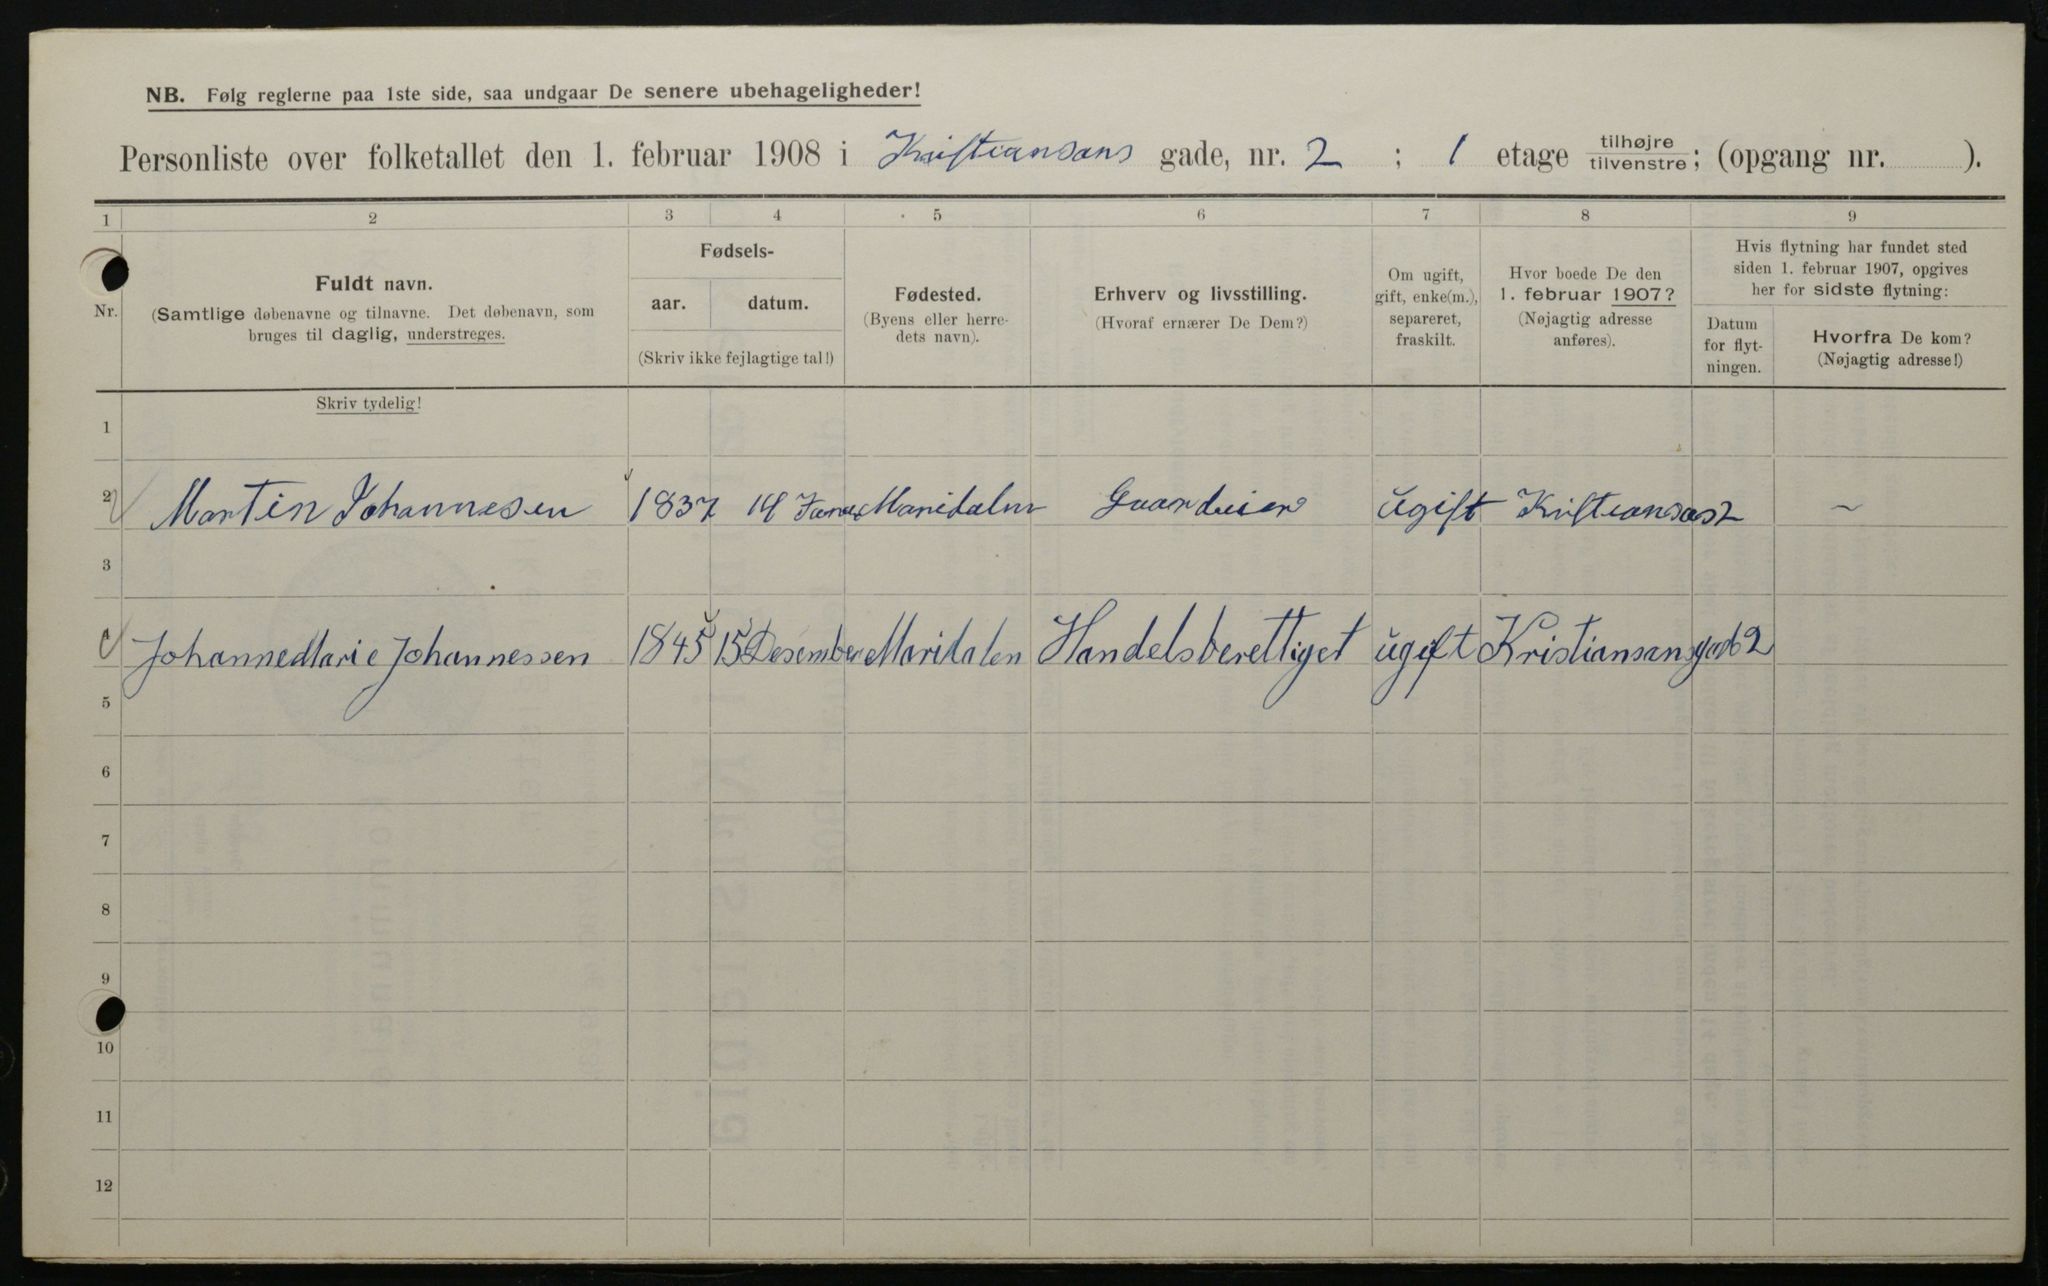 NB. Følg reglerne paa 1ste side, saa undgaar De senere ubehageligheder!
Personliste over folketallet den 1. februar 1908 i Kristiansans gade, nr. 2 ; 1 etage tilhøjre tilvenstre; (opgang nr. ).
1 2 3 4 5 6 7 8 9
Nr.
Fuldt navn.
(Samtlige døbenavne og tilnavne. Det døbenavn, som
bruges til daglig, understreges.
Fødsels-
aar. datum.
(Skriv ikke fejlagtige tal!)
Fødested.
(Byens eller herre-
dets navn).
Erhverv og livsstilling.
(Hvoraf ernærer De Dem?)
Om ugift,
gift, enke(m.),
separeret,
fraskilt.
Hvor boede De den
1. februar 1907?
(Nøjagtig adresse
anføres).
Hvis flytning har fundet sted
siden 1. februar 1907, opgives
her for sidste flytning:
Datum
for flyt-
ningen.
Hvorfra De kom?
(Nøjagtig adresse!)
Skriv tydelig!
1
2 Martin Johannesen 1837 14 Maridalen Gaardeier ugift Kristiansans 2 ~
3
Johanne Marie Johannessen 1845 15 Desember Maridalen Handelsberettiget ugift Kristiansansgade 2
5
6
7
8
9
10
11
12